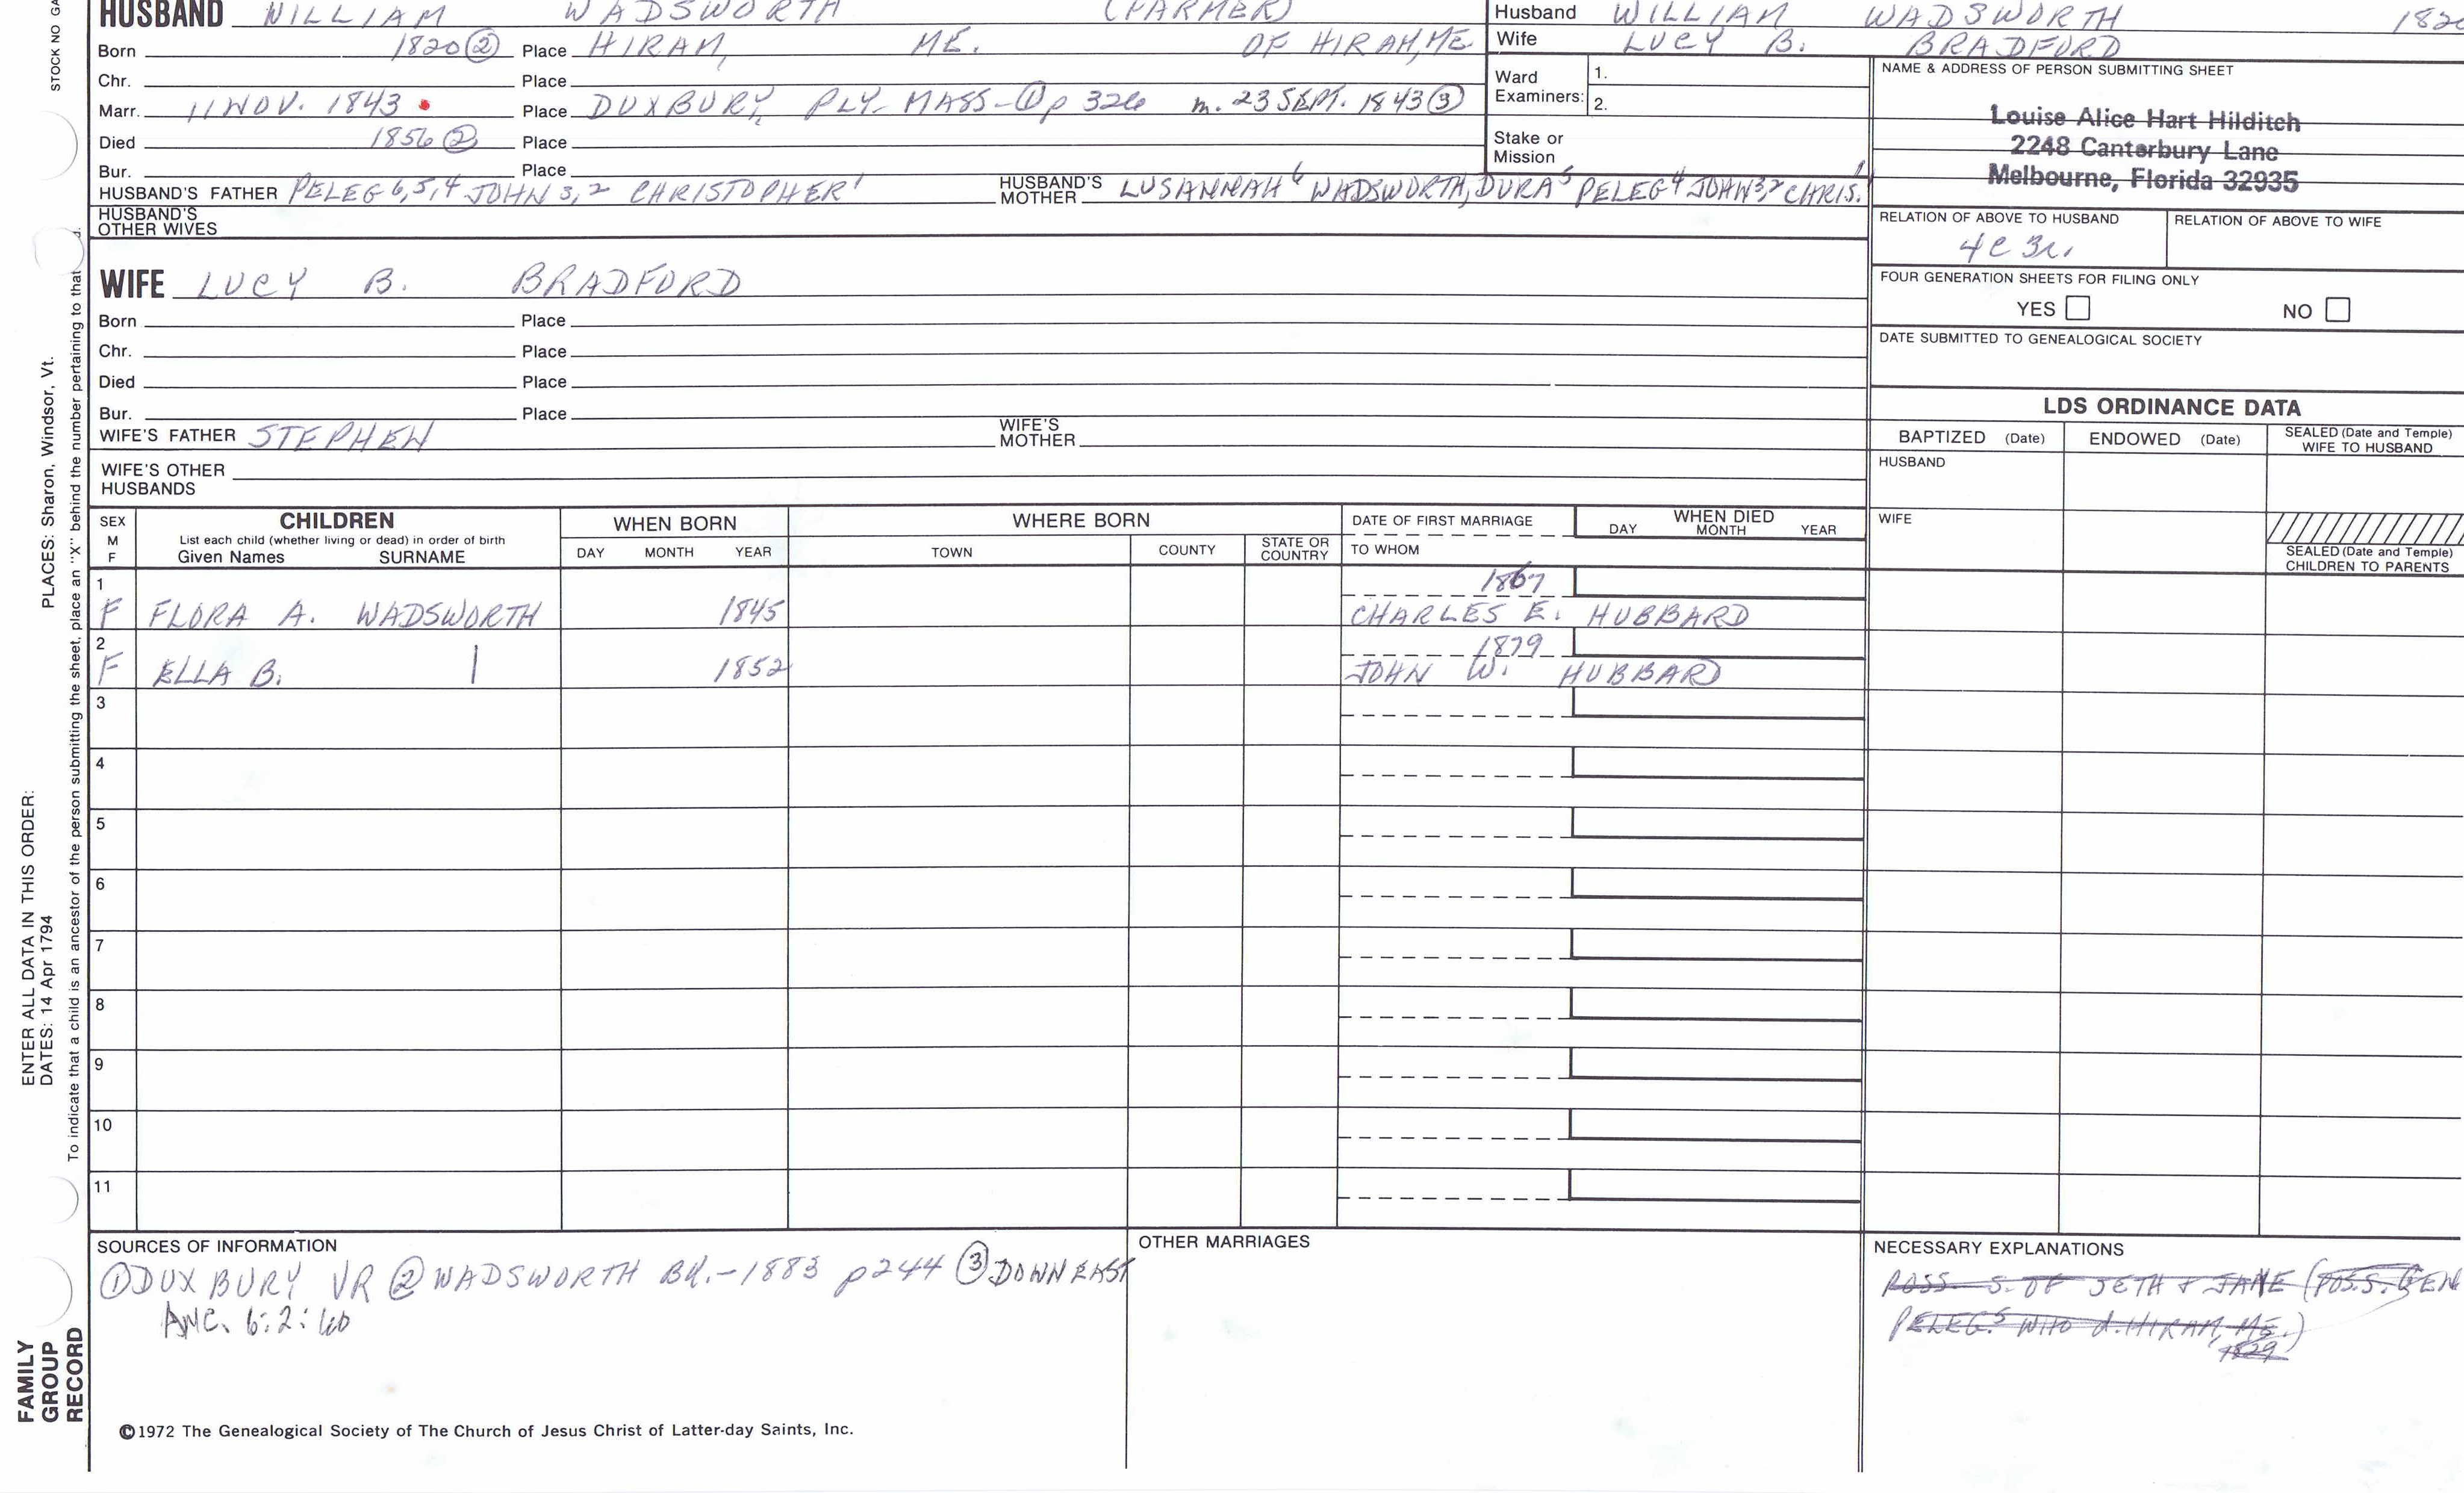 STOCK NO GA
HUSBAND WILLIAM WADSWORTH (FARMER)
Born 1820 ② Place HIRAM, ME. OF HIRAM, ME
Chr. Place
Marr. 11 NOV. 1843 Place DUXBURY, PLY- MASS-① p 326 m. 23 SEPT. 1843 ③
Died 1856 ② Place
Bur. Place
HUSBAND'S FATHER PELEG 6,5,4 JOHN 3,2 CHRISTOPHER 1 HUSBAND'S MOTHER LUSANNAH 6 WADSWORTH, DURA 5 PELEG 4 JOHN 3,2 CHRIS. 1
HUSBAND'S OTHER WIVES
Husband WILLIAM WADSWORTH 1820
Wife LUCY B. BRADFORD
Ward Examiners: 1.
2.
Stake or Mission
NAME & ADDRESS OF PERSON SUBMITTING SHEET
Louise Alice Hart Hilditch
2248 Canterbury Lane
Melbourne, Florida 32935
RELATION OF ABOVE TO HUSBAND RELATION OF ABOVE TO WIFE
4C 3r.
FOUR GENERATION SHEETS FOR FILING ONLY
YES NO
DATE SUBMITTED TO GENEALOGICAL SOCIETY
WIFE LUCY B. BRADFORD
Born Place
Chr. Place
Died Place
Bur. Place
WIFE'S FATHER STEPHEN WIFE'S MOTHER
WIFE'S OTHER HUSBANDS
LDS ORDINANCE DATA
BAPTIZED (Date) ENDOWED (Date) SEALED (Date and Temple) WIFE TO HUSBAND
HUSBAND
WIFE
SEALED (Date and Temple) CHILDREN TO PARENTS
SEX M F CHILDREN WHEN BORN WHERE BORN DATE OF FIRST MARRIAGE WHEN DIED
List each child (whether living or dead) in order of birth
Given Names SURNAME DAY MONTH YEAR TOWN COUNTY STATE OR COUNTRY TO WHOM DAY MONTH YEAR
1 1867
F FLORA A. WADSWORTH 1845 CHARLES E. HUBBARD
2 1879
F ELLA B. | 1852 JOHN W. HUBBARD
3
4
5
6
7
8
9
10
11
SOURCES OF INFORMATION
① DUXBURY VR ② WADSWORTH BK.-1883 p244 ③ DOWN EAST
ANC. 6:2:60
OTHER MARRIAGES
NECESSARY EXPLANATIONS
POSS. S. OF SETH & JANE (POSS. GEN
PELEG 5 WHO d. HIRAM, ME.)
1829
©1972 The Genealogical Society of The Church of Jesus Christ of Latter-day Saints, Inc.
PLACES: Sharon, Windsor, Vt.
To indicate that a child is an ancestor of the person submitting the sheet, place an "X" behind the number pertaining to that d.
ENTER ALL DATA IN THIS ORDER:
DATES: 14 Apr 1794
FAMILY
GROUP
RECORD